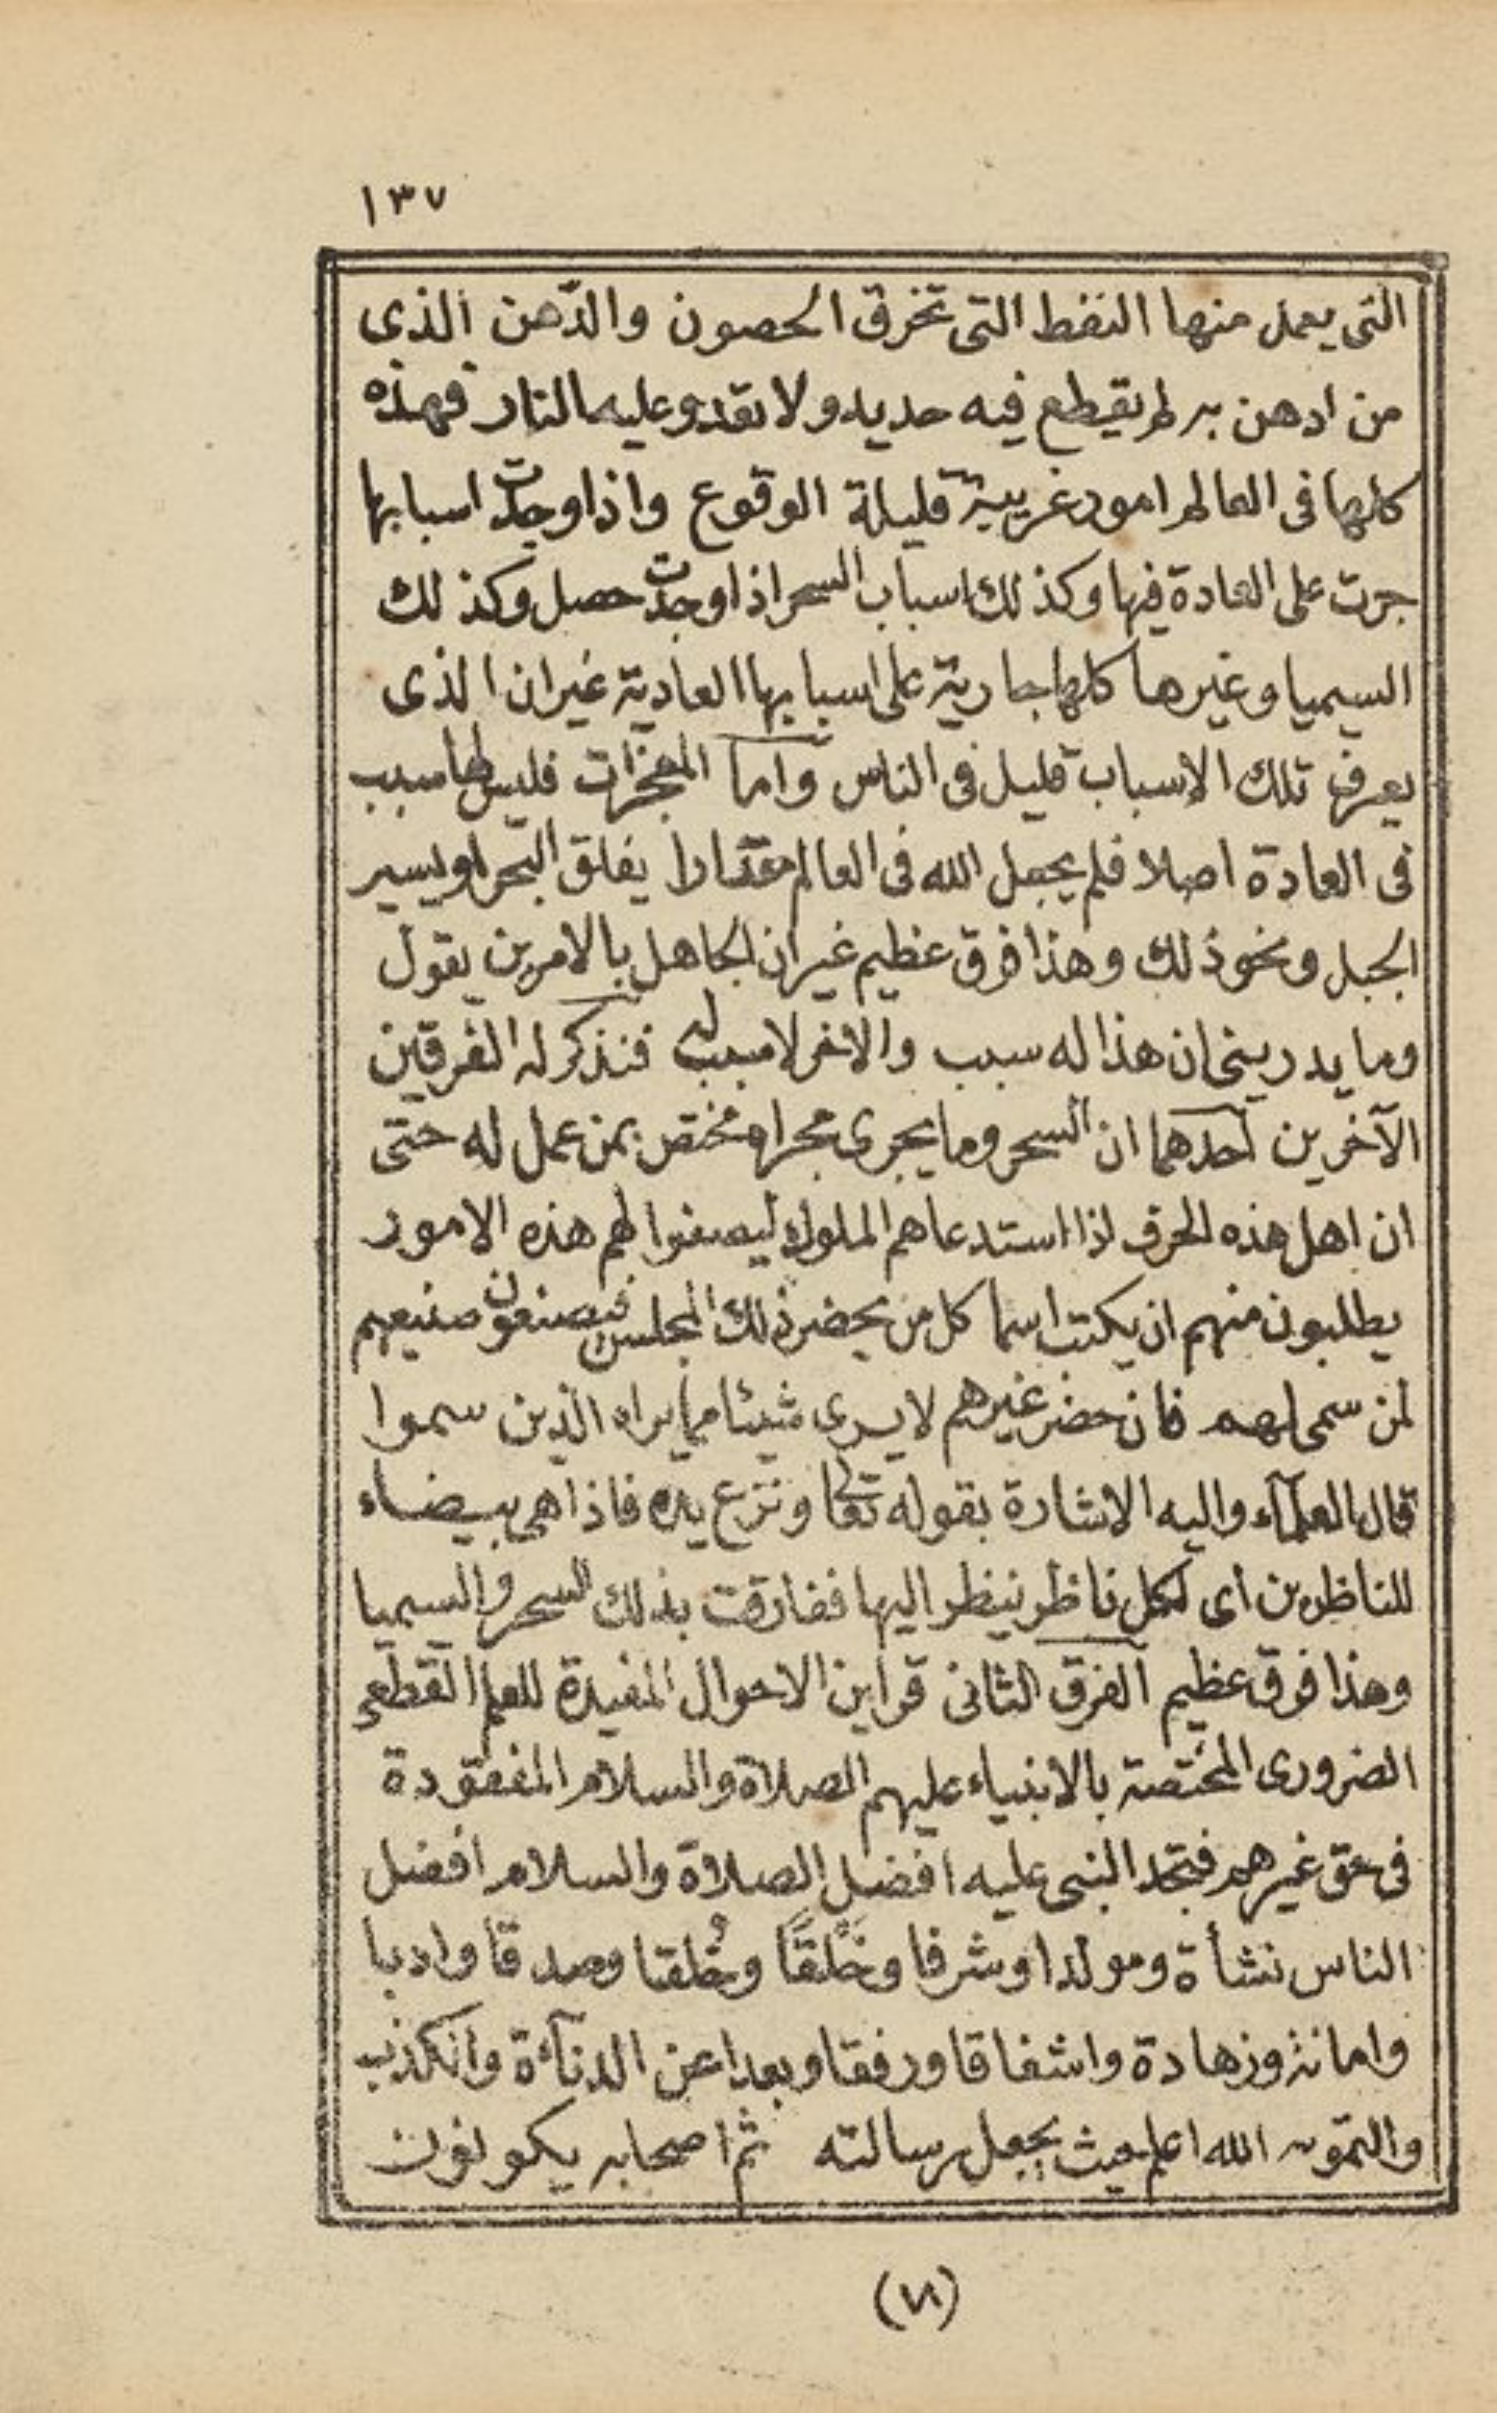 ١٣٧
التى يعمل منها النفط التى تخرق الحصون والدّهن الذى
من ادهن به لم يقطع فيه حديد ولا تقدو عليه النار فهذه
كلها فى العالم امور غريبة قليلة الوقوع واذا وجدت اسبابها
جرت على العادة فيها وكذلك اسباب السحر اذا وجدت حصل وكذلك
السيميا وغيرها كلها جارية على اسبابها العادية غير ان الذى
يعرف تلك الاسباب قليل فى الناس وأما المعجزات فليس لها سبب
فى العادة اصلا فلم يجعل الله فى العالم عقارا يفلق البحر او يسير
الجبل ونحو ذلك وهذا فرق عظيم غير ان الجاهل بالامرين يقول
وما يدرينى ان هذا له سبب والآخر لا سبب له فنذكر له الفرقين
الآخرين أحدهما ان السحر وما يجرى مجراه مختص بمن عمل له حتى
ان اهل هذه الحرف اذا استدعاهم الملوك ليصنعوا لهم هذه الامور
يطلبون منهم ان يكتب اسما كل من يحضر ذلك المجلس فيصنعون صنيعهم
لمن سمى لهم فان حضر غيرهم لا يرى شيئا مما يراه الذين سموا
قال العلمآء واليه الاشارة بقوله تعالى ونزع يده فاذا هى بيضاء
للناظرين أى لكل ناظر ينظر اليها ففارقت بذلك السحر والسيميا
وهذا فرق عظيم الفرق الثانى قراين الاحوال المفيدة للعلم القطعى
الضرورى المختصة بالانبياء عليهم الصلاة والسلام المفقودة
فى حق غيرهم فتجد النبى عليه افضل الصلاة والسلام افضل
الناس نشأة ومولدا وشرفا وخَلْقًا وخُلقا وصدقا وادبا
وامانة وزهادة واشفاقا ورفقا وبعدا عن الدنآءة والكذب
والتمويه الله اعلم حيث يجعل رسالته ثم اصحابه يكونون
(٧١)